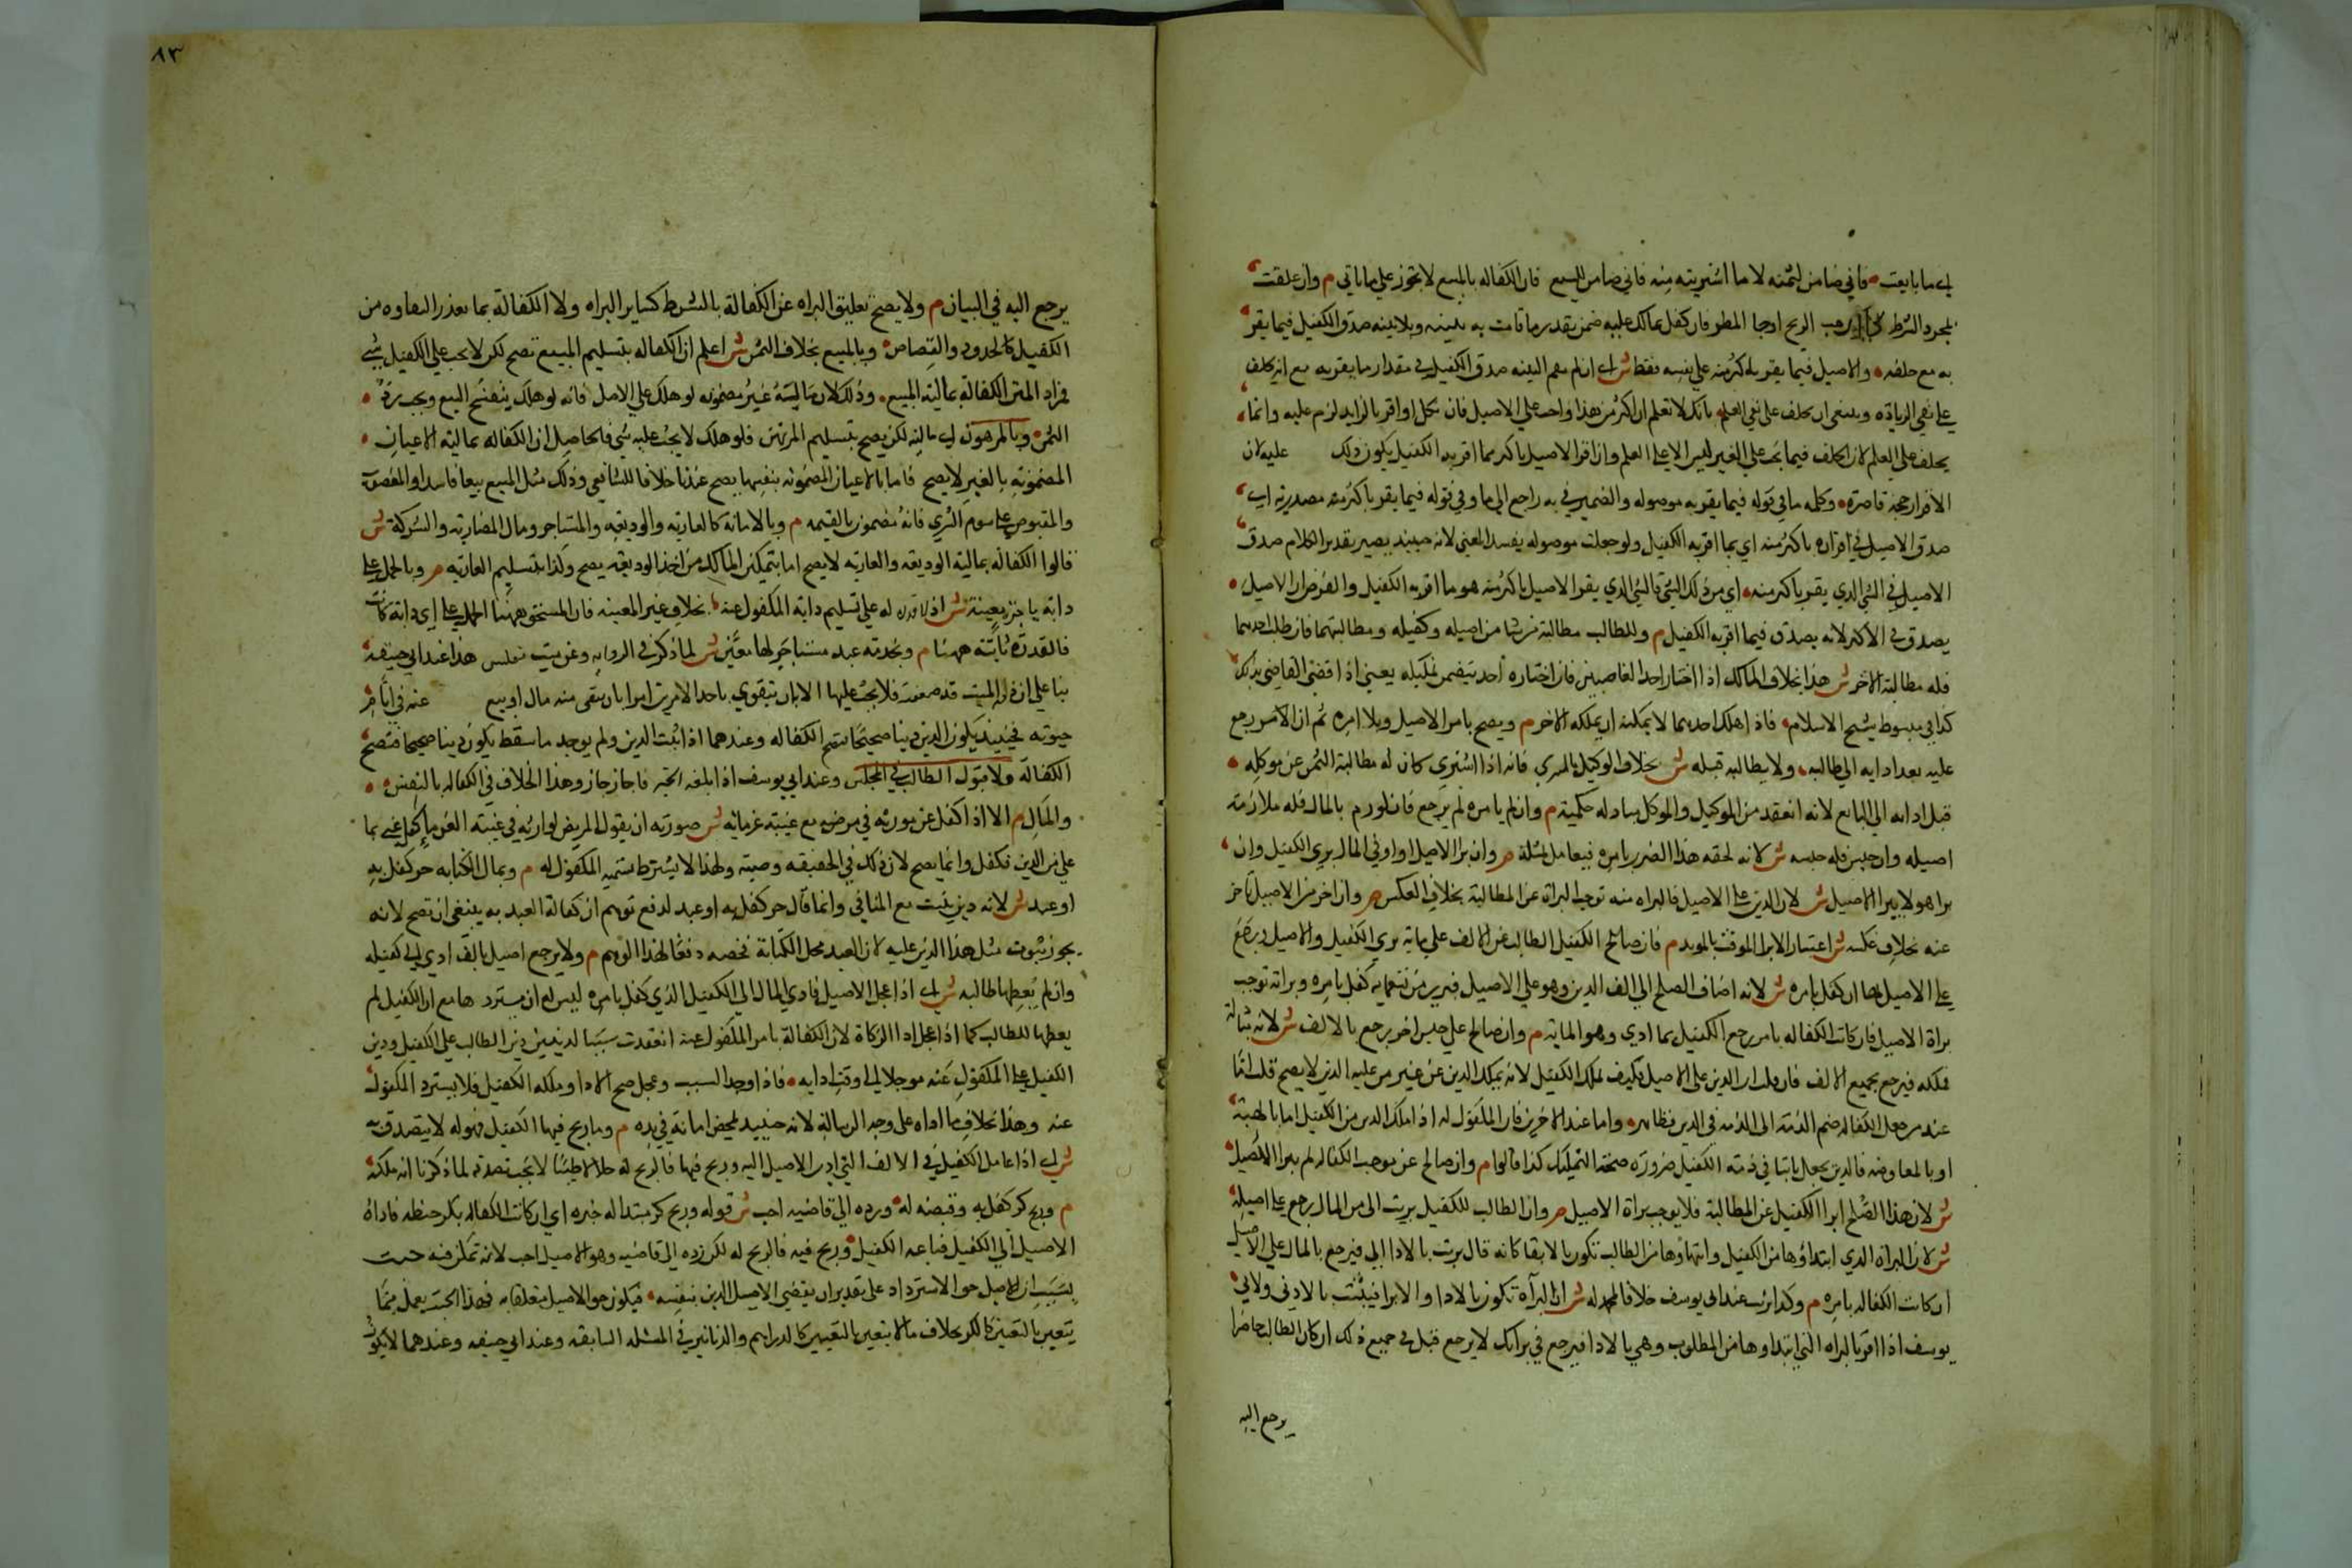 اي ما بايعت فاني ضامن لثمنه لا ما اشتريته منه فاني ضامن للمبيع فان الكفاله بالمبيع لا تجوز علي ما ياتي م وان علقت
بمجرد الشرط فلا كان هب الريح او جا المطر فان كفل بما لك عليه ضمن بقدر ما قامت به بينه وبلا بينه صدق الكفيل فيما يقر
به مع حلفه والاصيل فيما يقر باكثر منه علي نفسه فقط ش اي ان لم يقم البينه صدق الكفيل في مقدار ما يقر به مع انه يحلف
علي نفي الزياده وينبغي ان يحلف علي نفي العلم بانك لا تعلم ان اكثر من هذا واجب علي الاصيل فان نكل او اقر بالزايد لزم عليه وانما
يحلف علي العلم لان الحلف فيما يجب علي الغير ليس الا علي العلم وان اقر الاصيل باكثر مما اقر به الكفيل يكون ذلك عليه لان
الاقرار حجة قاصرة وكلمه ما في قوله فيما يقر به موصوله والضمير في به راجع الي ما وفي قوله فيما يقر باكثر منه مصدرية اي
صدق الاصيل في اقراره باكثر منه اي بما اقر به الكفيل ولو جعلت موصوله يفسد المعني لانه حينيذ يصير تقدير الكلام صدق
الاصيل في الشي الذي يقر باكثر منه اي من ذلك الشي فالشي الذي يقر الاصيل باكثر منه هو ما اقر به الكفيل والفرض ان الاصيل
يصدق في الاكثر لانه يصدق فيما اقر به الكفيل م وللطالب مطالبة من شا من اصيله وكفيله ومطالبتهما فان طلب احدهما
فله مطالبة الاخر ش هذا بخلاف المالك اذا اختار احد الغاصبين فان اختياره احد يتضمن تمليكه يعني اذا قضي القاضي بذلك
كذا في مبسوط شيخ الاسلام فاذا هلك احدهما لا يمكنه ان يملكه الاخر م ويصح بامر الاصيل وبلا امره ثم ان الامر رجع
عليه بعد ادايه الي طالبه ولا يطالبه قبله ش بخلاف الوكيل بالشري فانه اذا اشتري كان له مطالبة الثمن عن موكله
قبل ادايه الي البايع لانه انعقد بين الوكيل والموكل مبادله حكمية م وان لم يامره لم يرجع فان لوزم بالمال فله ملازمة
اصيله وان حبس فله حبسه ش لانه لحقه هذا الضرر بامره فيعامل بمثله م وان برا الاصيل او اوفي المال بري الكفيل وان
برا هو لا يبرا الاصيل ش لان الدين علي الاصيل فالبراه منه توجب البراة عن المطالبة بخلاف العكس م وان اخر عن الاصيل تاخر
عنه بخلاف عكسه ش اعتبارا للابرا الموقت بالموبد م فان صالح الكفيل الطالب عن الالف علي ماية بري الكفيل والاصيل ورجع
علي الاصيل بها ان كفل بامره ش لانه اضاف الصلح الي الف الدين وهو علي الاصيل فبري من تسعماية كفل بامره وبراته توجب
براة الاصيل فان كانت الكفاله بامره رجع الكفيل بما ادي وهو الماية م وان صالح علي جنس اخر يرجع بالالف ش لانه مبادلة
فملكه فيرجع بجميع الالف فان قلت ان الدين علي الاصيل فكيف يملك الكفيل لانه تمليك الدين عن غير من عليه الدين لا يصح قلت اما
عند من جعل الكفاله ضم الذمة الي الذمه في الدين فظاهر واما عند الاخرين فان المكفول له اذا ملك الدين من الكفيل اما بالهبة
او بالمعاوضه فالدين يجعل ثابتا في ذمة الكفيل ضرورة صحة التمليك كذا قالوا م وان صالح عن موجب الكفاله لم يبرا الاصيل
ش لان هذا الصلح ابرا الكفيل عن المطالبة فلا يوجب براة الاصيل م وان قال الطالب للكفيل بريت الي من المال رجع علي اصيله
ش لان البراة الذي ابتداؤها من الكفيل وانتهاؤها من الطالب تكون بالايفا كانه قال بريت بالادا الي فيرجع بالمال علي الاصيل
ان كانت الكفاله بامره م وكذا بريت عند ابي يوسف خلافا لمحمد له ش ان البراة تكون بالادا والابرا فيثبت بالادني ولابي
يوسف اذا اقر بالبراه التي ابتداوها من المطلوب وهي بالادا فيرجع في براتك لا يرجع قيل في جميع ذلك ان كان الطالب حاضرا
يرجع اليه
٨٣
يرجع اليه في البيان م ولا يصح تعليق البراه عن الكفالة بالشرط كساير البراه ولا الكفالة بما تعذر استيفاوه من
الكفيل كالحدود والقصاص وبالمبيع بخلاف الثمن ش اعلم ان الكفاله بتسليم المبيع تصح لكن لا يجب علي الكفيل شي
فمراد المتن الكفالة بمالية المبيع وذلك لان ماليته غير مضمونه لو هلك علي الاصل فانه لو هلك ينفسخ البيع ويجب رد
الثمن وبالمرهون اي ماليته لكن يصح بتسليم المرتهن فلو هلك لا يجب عليه شي فالحاصل ان الكفاله بمالية الاعيان
المضمونة بالغير لا يصح فاما بالاعيان المضمونه بنفسها يصح عندنا خلافا للشافعي وذلك مثل المبيع بيعا فاسدا والمغصوب
والمقبوض علي سوم الشري فانه مضمون بالقيمه م وبالامانة كالعاريه والوديعه والمستاجر ومال المضاربه والشركة ش
قالوا الكفالة بمالية الوديعه والعاريه لا يصح اما بتمكين المالك من اخذ الوديعه يصح وكذا بتسليم العاريه م وبالحمل علي
دابة باجر معينة ش اذ لا قدره له علي تسليم دابه المكفول عنه بخلاف غير المعينه فان المستحق ههنا الحمل علي اي دابة كانت
فالقدرة ثابتة ههنا م وبخدمة عبد مستاجر لها معين ش لما ذكر في الروايه وعن ميت مفلس هذا عند ابي حنيفه
بنا علي ان ذمة الميت قد ضعفت فلا يجب عليها الا بان يتقوي باحد الامرين اما بان بقي منه مال او بيع عنه في ايام
حيوته فحينيذ يكون الدين دينا صحيحا يصح الكفاله وعندهما اذا ثبت الدين ولم يوجد ما سقط يكون دينا صحيحا فتصح
الكفالة ولا قبول الطالب في المجلس وعند ابي يوسف اذا بلغه الخبر فاجاز جاز وهذا الخلاف في الكفاله بالنفس
والمال م الا اذا كفل عن مورثه في مرضه مع غيبة غرمائه ش صورته ان يقول المريض لوارثه في غيبة الغرما كفل عني بما
علي من الدين فكفل وانما يصح لان ذلك في الحقيقه وصية ولهذا لا يشترط تسمية المكفول له م وبمال الكتابه حر كفل به
او عبد ش لانه دين يثبت مع المنافي وانما قال حر كفل به او عبد لدفع توهم ان كفالة العبد به ينبغي ان تصح لانه
يجوز ثبوت مثل هذا الدين عليه لان العبد محل الكتابة فخصه دفعا لهذا الوهم م ولا يرجع اصيل بالف ادي الي كفيله
وان لم يعطها طالبه ش اي اذا عجل الاصيل فادي المال الي الكفيل الذي كفل بامره ليس له ان يسترد ها مع ان الكفيل لم
يعطها للطالب كما اذا عجل ادا الزكاة لان الكفالة بامر المكفول عنه انعقدت سببا لدينين دين الطالب علي الكفيل ودين
الكفيل علي المكفول عنه موجلا الي وقت ادايه فاذا وجد السبب وعجل صح الادا وملكه الكفيل فلا يسترد المكفول
عنه وهذا بخلاف ما اداه علي وجه الرسالة لانه حينيذ تمحض امانة في يده م وما ربح فيها الكفيل فهو له لا يتصدق به
ش اي اذا عامل الكفيل في الالف التي ادي الاصيل اليه وربح فيها فالربح له حلالا طيبا لا يجب تصدقه لما ذكرنا انه ملكه
م وربح كر كفل به وقبضه له ورده الي قاضيه احب ش قوله وربح كر مبتدا له خبره اي ان كانت الكفاله بكر حنطه فاداه
الاصيل الي الكفيل فباعه الكفيل وربح فيه فالربح له لكن رده الي قاضيه وهو الاصيل احب لانه تمكن فيه خبث
بسبب ان للاصيل حق الاسترداد علي تقدير ان يقضي الاصيل الدين بنفسه فيكون حق الاصيل متعلقا به فهذا الخبث يعمل فيما
يتعين بالتعيين كالكر بخلاف ما لا يتعين بالتعيين كالدراهم والدنانير في المسئله السابقه وعند ابي حنيفه وعندهما لا يكون